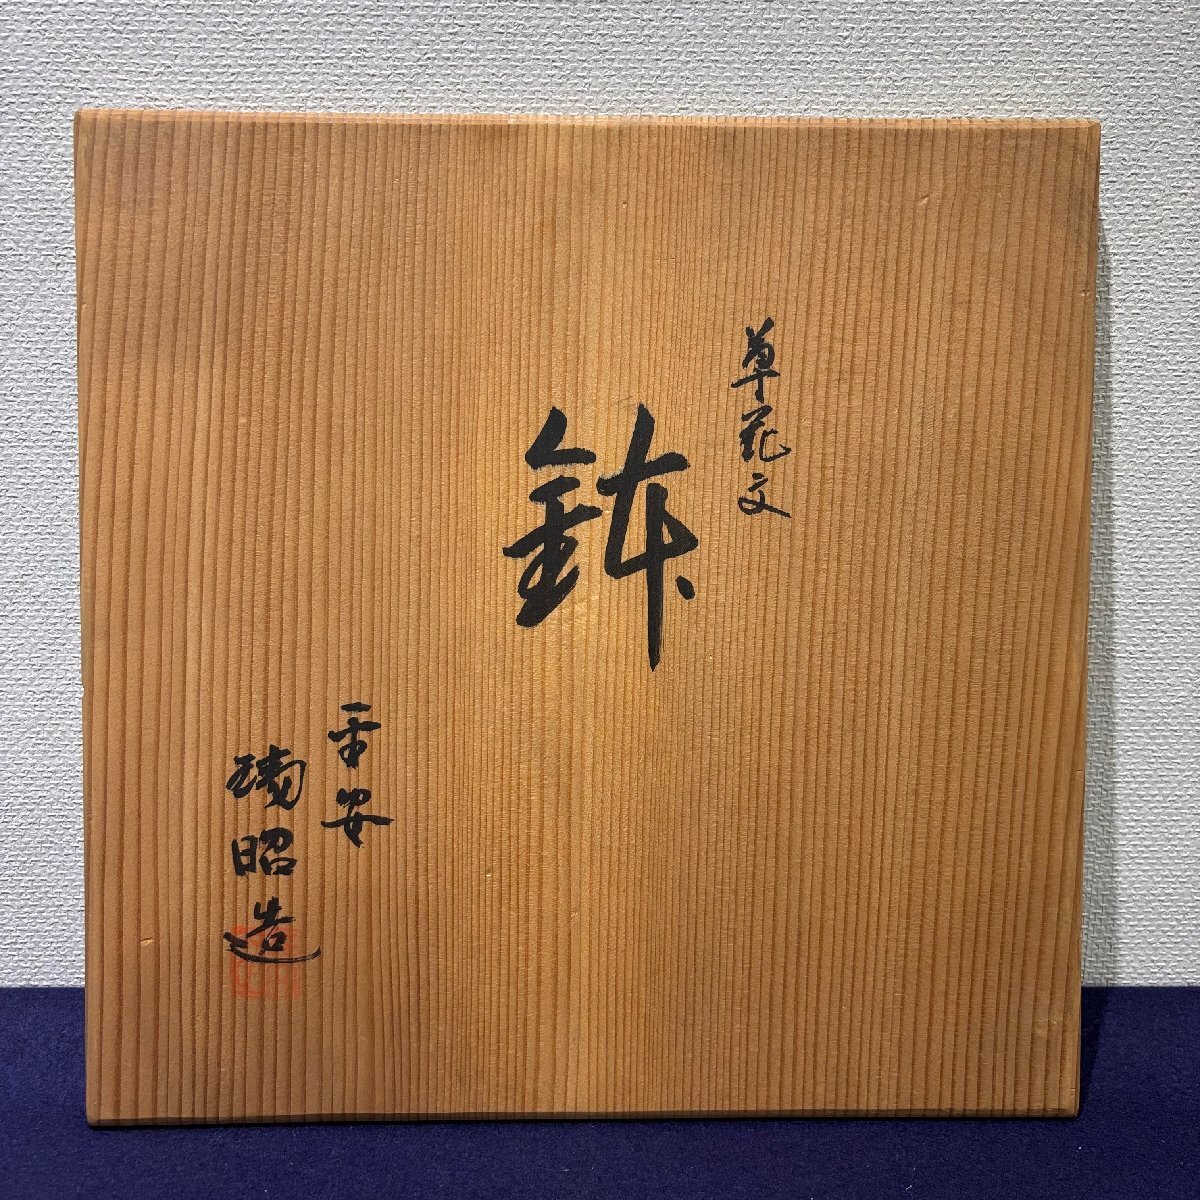 草花文
鉢
平安
瑞昭造